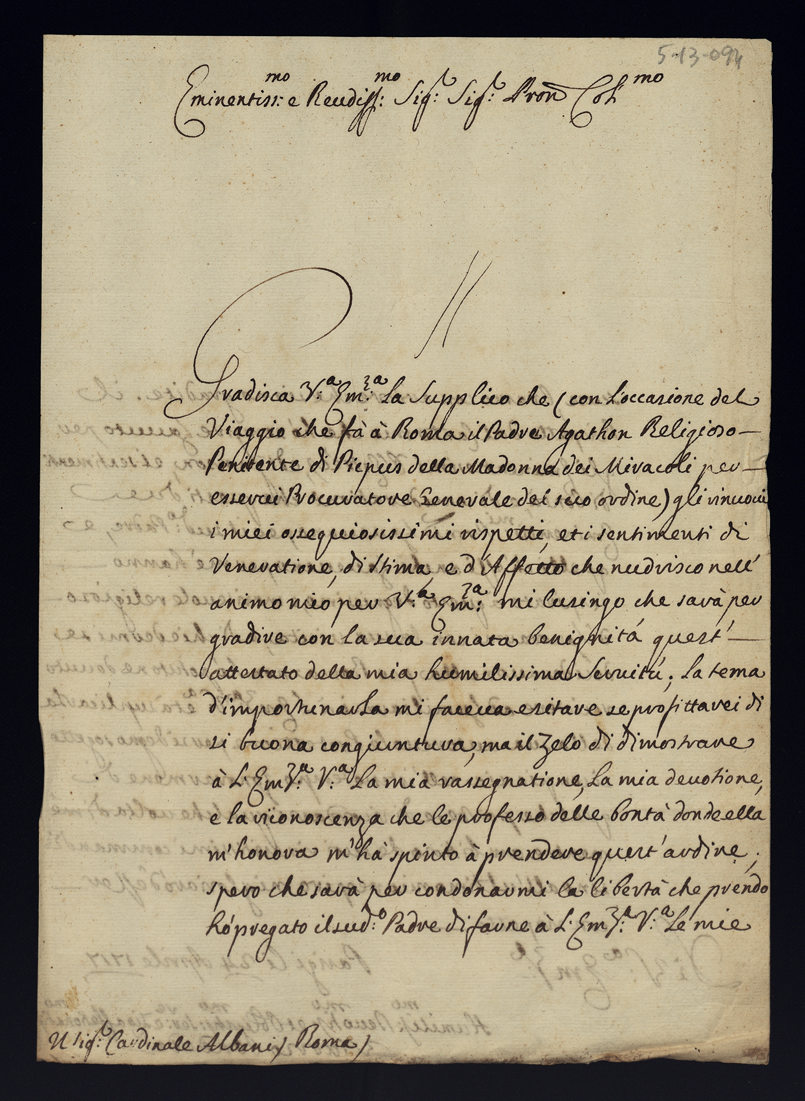 5-13-094
Eminentiss:mo e Revdiss:mo Sig:r Sig:r Pron Col:mo
Gradisca V:a Em:za La Supplico che (con l'occasione del
Viaggio che fà à Roma il Padre Agathon Religioso
Penitente di Picpus della Madonna dei Miracoli per
esservi Procuratore Generale del suo ordine) gli rinuovi
i miei ossequiosissimi rispetti, et i sentimenti di
Veneratione, di stima, e d'Affetto che nudrisco nell'
animo mio per V:a Em:za mi lusingo che sarà per
gradire con la sua innata benignità quest'
attestato della mia humilissima Servitù; la tema
d'importunarla mi faceva esitare se profittarei di
si buona congiuntura, ma il Zelo di dimostrare
à L'Em:za V:a La mia rassegnatione, La mia devotione,
e la riconoscenza che le professo delle bontà donde ella
m'honora m'hà spinto à prendere quest'ardire;
spero che sarà per condonarmi la libertà che prendo
hò pregato il sud:o Padre di farne à L'Em:za V:a Le mie
Il sig:r Cardinale Albani / Roma /